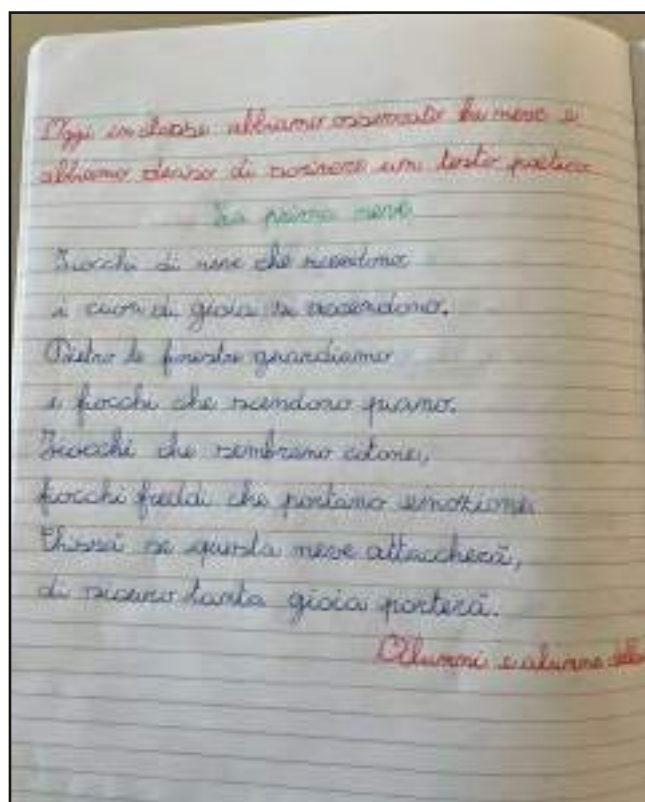 Oggi in classe abbiamo osservato la neve e
abbiamo deciso di scrivere un testo poetico.
La prima neve
Fiocchi di neve che scendono
i cuori di gioia si accendono.
Dietro le finestre guardiamo
i fiocchi che scendono piano.
Fiocchi che sembrano cotone,
fiocchi freddi che portano emozione.
Chissà se questa neve attaccherà,
di sicuro tanta gioia porterà.
Alunni e alunne della